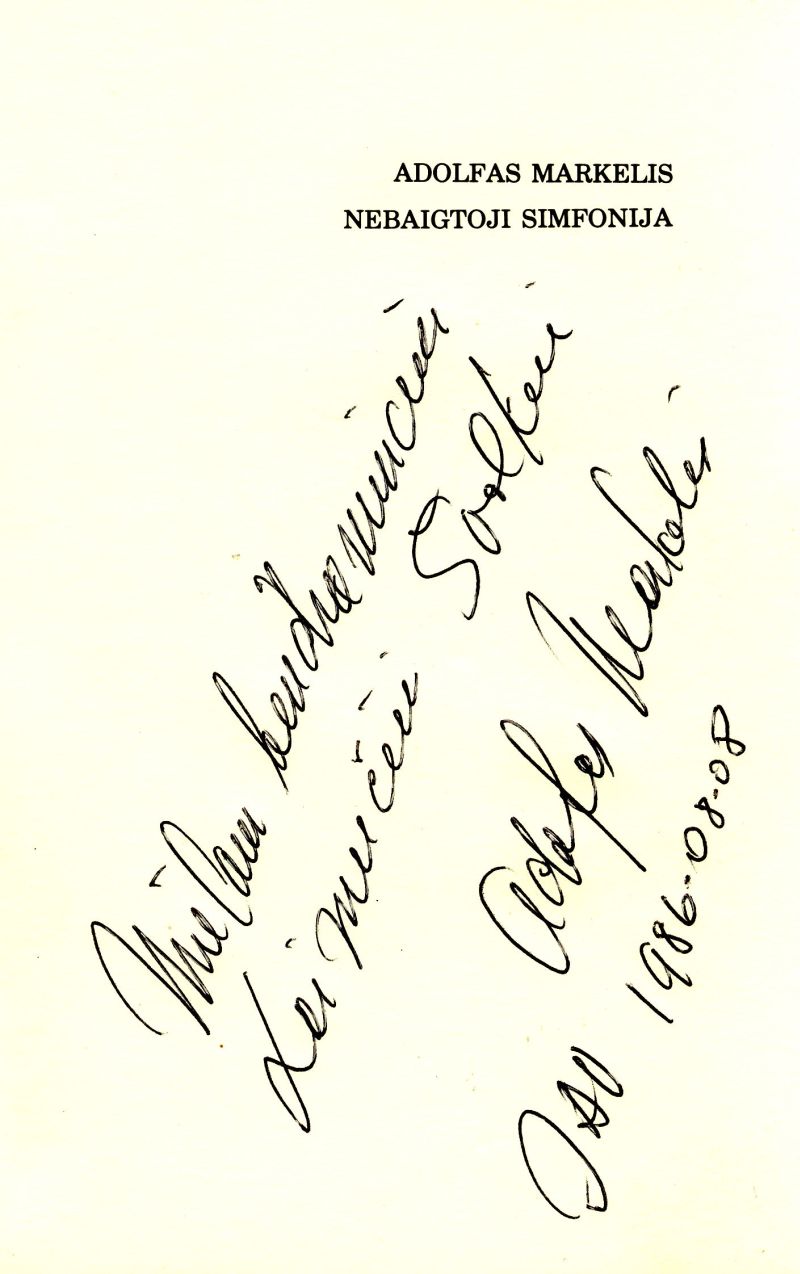 ADOLFAS MARKELIS
NEBAIGTOJI SIMFONIJA
Mielam bendraminčiui
Laimučiui
Adolfas Markelis
JAV 1986-08-08